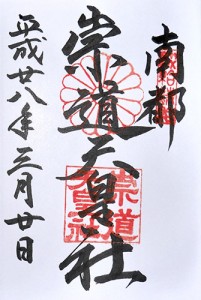 南都
崇道天皇社
平成廿八年三月廿日
崇道
天皇社